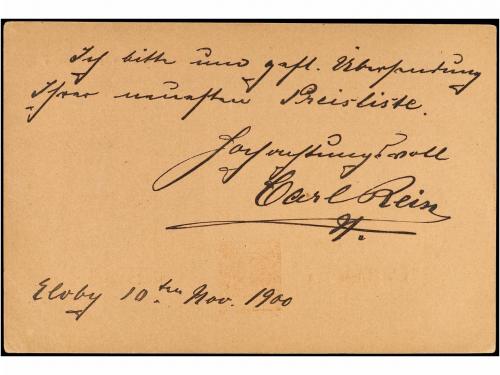 Ich bitte um gefl. Übersendung
Ihrer neuesten Preisliste.
Hochachtungsvoll
Carl Rein
Eloby 10ten Nov. 1900